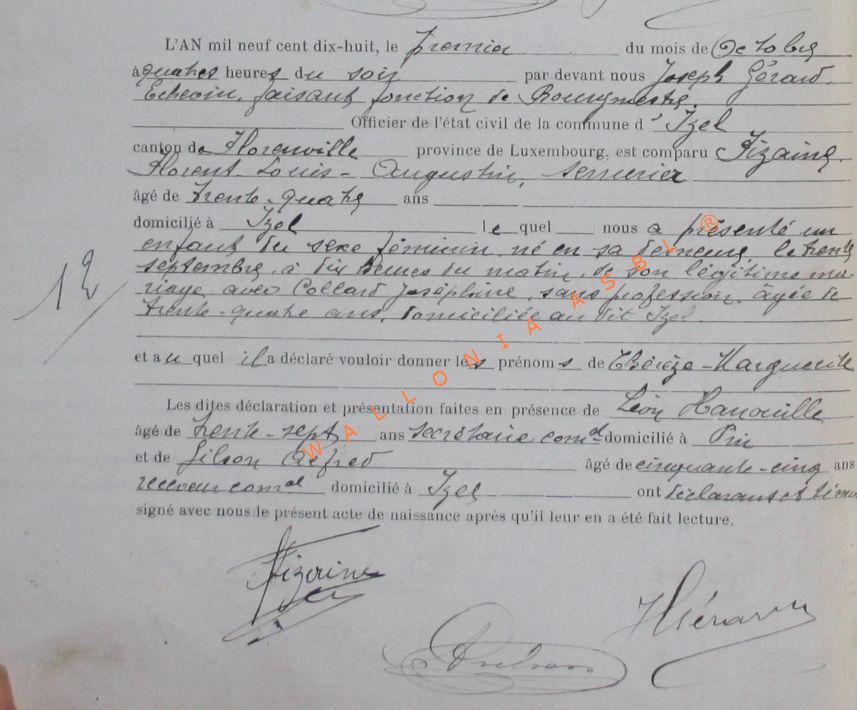 L'AN mil neuf cent dix-huit, le premier du mois de Octobre
à quatre heures du soir par devant nous Joseph Gérard
Echevin, faisant fonction de Bourgmestre.
Officier de l'état civil de la commune d' Izel
canton de Florenville province de Luxembourg, est comparu Fizaine
Florent-Louis-Augustin, serrurier
âgé de trente-quatre ans
domicilié à Izel le quel nous a présenté un
enfant du sexe féminin, né en sa demeure, le trente
septembre, à dix heures du matin, de son légitime ma-
riage avec Collard Joséphine, sans profession, âgée de
trente-quatre ans, domiciliée au dit Izel
12
et au quel il a déclaré vouloir donner les prénoms de Thérèze-Marguerite
Les dites déclaration et présentation faites en présence de Léon
âgé de trente-sept ans secrétaire comal domicilié à Pin
et de Gilson Alfred âgé de cinquante-cinq ans
receveur comal domicilié à Izel ont déclarant et témoins
signé avec nous le présent acte de naissance après qu'il leur en a été fait lecture.
WALLONIA ASBL ®